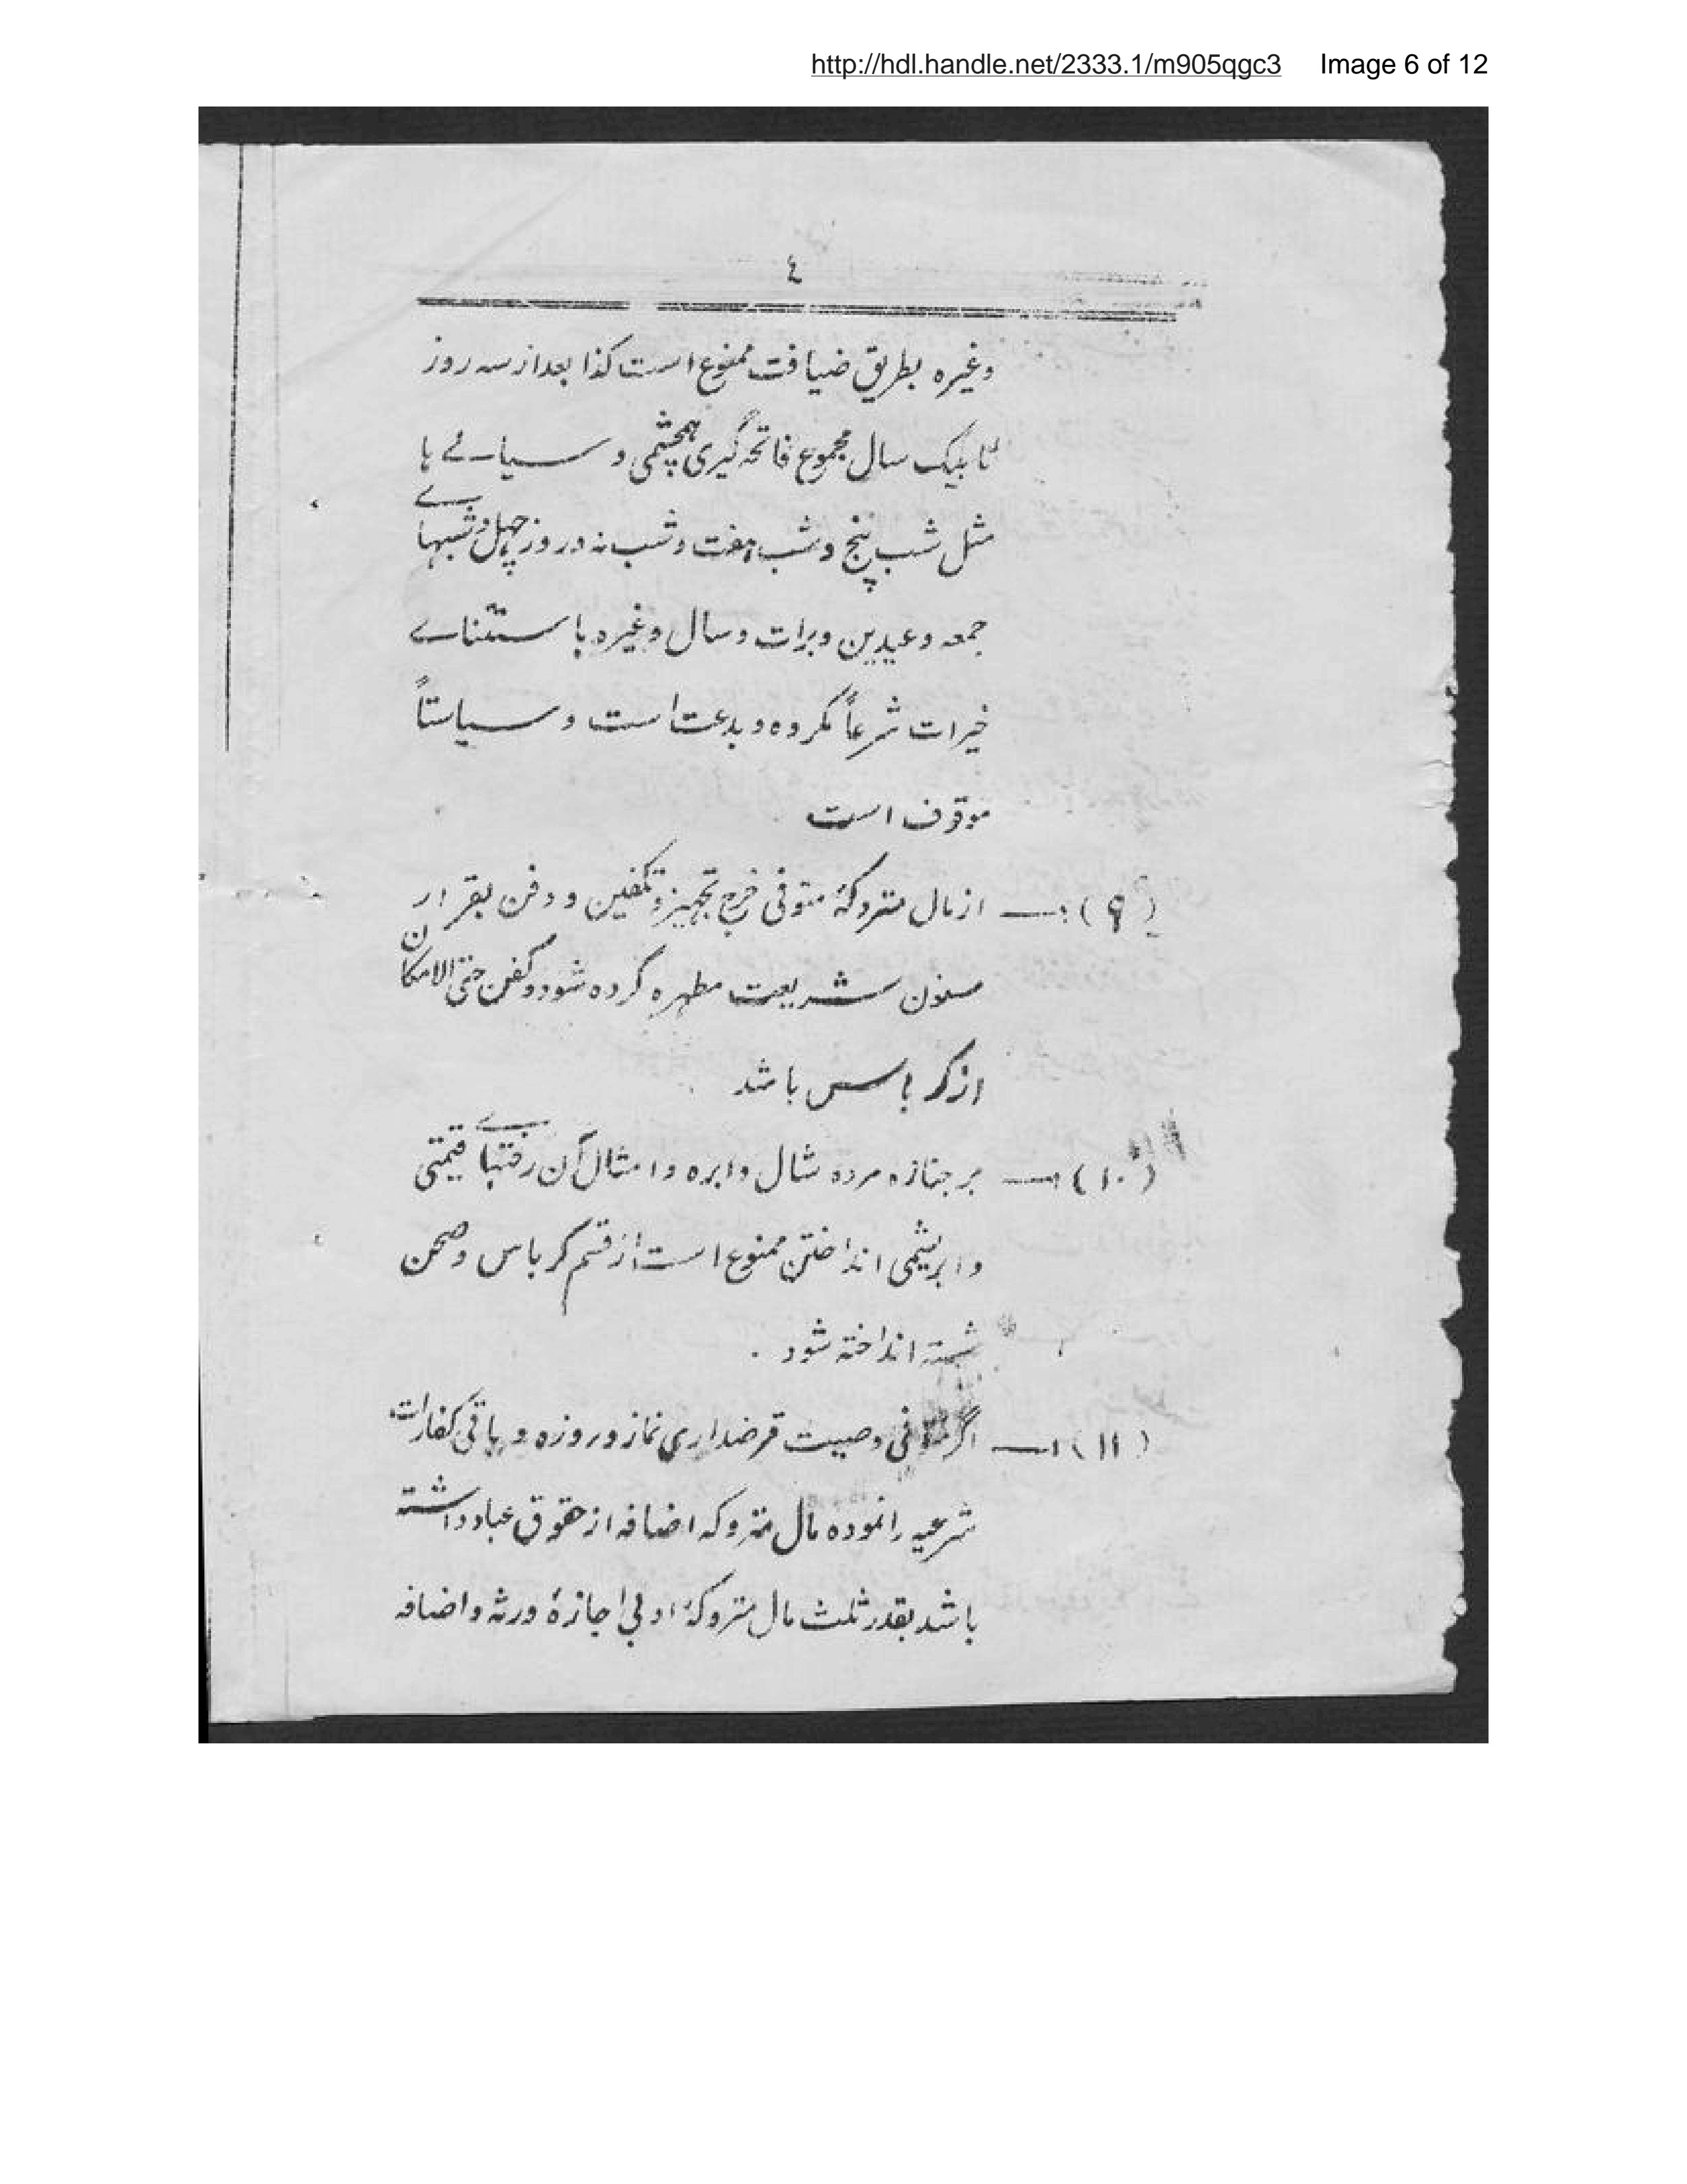 http://hdl.handle.net/2333.1/m905qgc3 Image 6 of 12
٤
وغیره بطریق ضیافت ممنوع است کذا بعد از سه روز
تا بیک سال مجموع فاتحه گیری همچشمی و سیالے ها
مثل شب پنج و شب هفت و شب نه و روز چهل و شبهاے
جمعه و عیدین و برات و سال وغیره باستثناے
خیرات شرعاً مکروه و بدعت است و سیاستاً
موقوف است
(۹) :— از مال متروکهٔ متوفی خرج تجهیز و تکفین و دفن بقرار
مسنون شریعت مطهره کرده شود و کفن حتی الامکان
از کرباس باشد
(۱۰) :— بر جنازه مرده شال و ابره و امثال آن رختهاے قیمتی
و ابریشمی انداختن ممنوع است از قسم کرباس و صحن
شسته انداخته شود .
(۱۱) :— اگر متوفی وصیت قرضداری نماز و روزه و باقی کفارات
شرعیه را نموده مال متروکه اضافه از حقوق عباد داشته
باشد بقدر ثلث مال متروکهٔ او بی اجازهٔ ورثه و اضافه